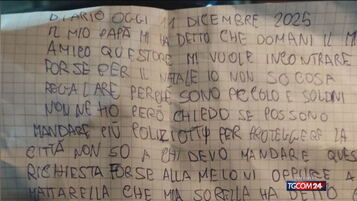 DIARIO OGGI 11 DICEMBRE 2025
IL MIO PAPÀ MI HA DETTO CHE DOMANI IL M
AMICO QUESTORE MI VUOLE INCONTRARE
FORSE PER IL NATALE IO NON SO COSA
REGALARE PERCHÉ SONO PICCOLO E SOLDINI
NON NE HO PERÒ CHIEDO SE POSSONO
MANDARE PIÙ POLIZIOTTI PER PROTEGGERE LA
CITTÀ NON SO A CHI DEVO MANDARE QUES
RICHIESTA FORSE ALLA MELONI OPPURE A
MATTARELLA CHE MIA SORELLA HA DETTO
TGCOM24